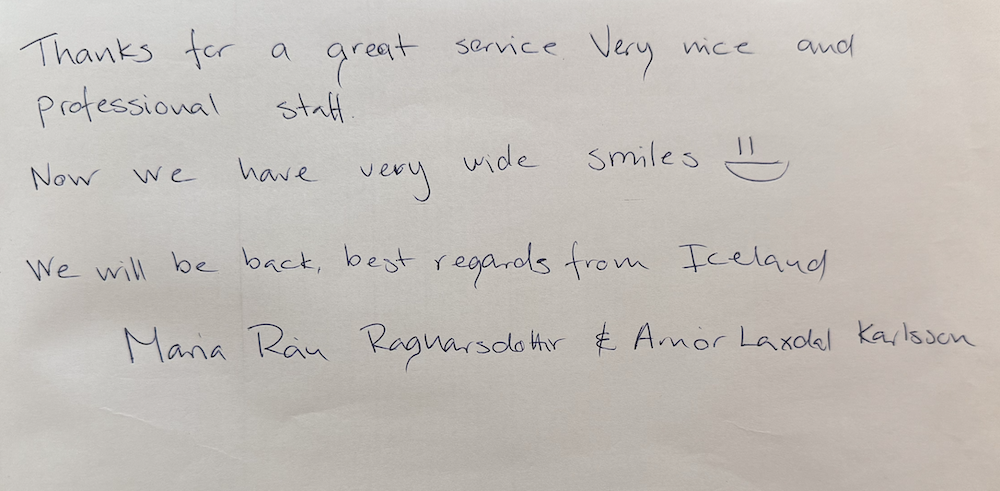 Thanks for a great service Very nice and
professional staff.
Now we have very wide smiles
We will be back, best regards from Iceland
Maria Rán Ragnarsdottir & Arnór Laxdal Karlsson